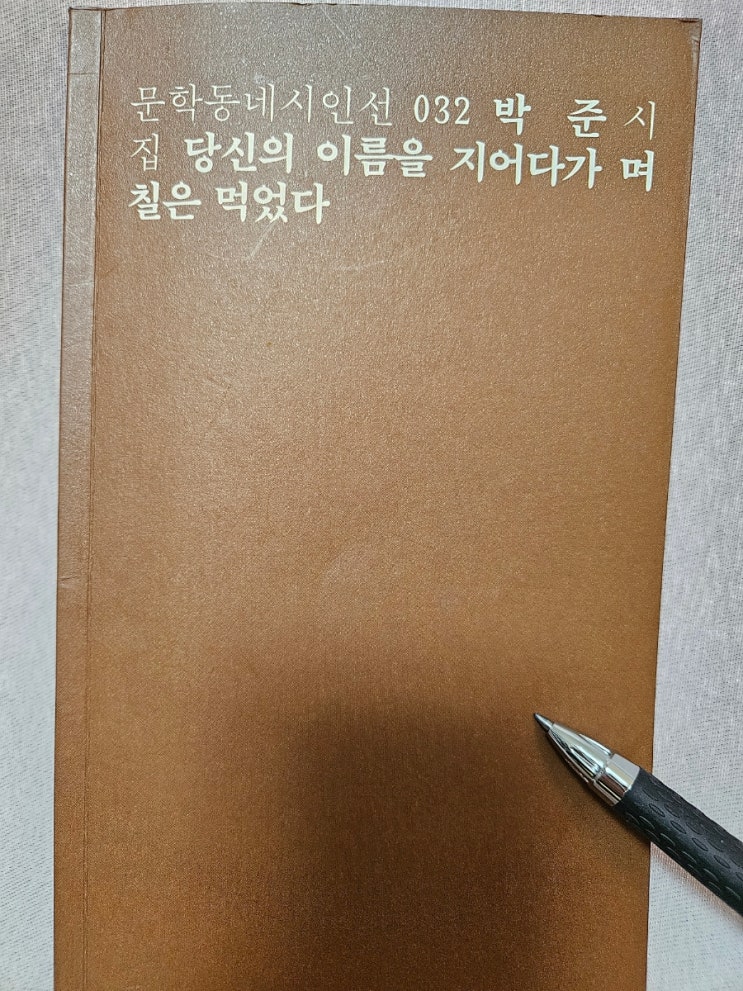 문학동네시인선 032 박 준 시
집 당신의 이름을 지어다가 며
칠은 먹었다